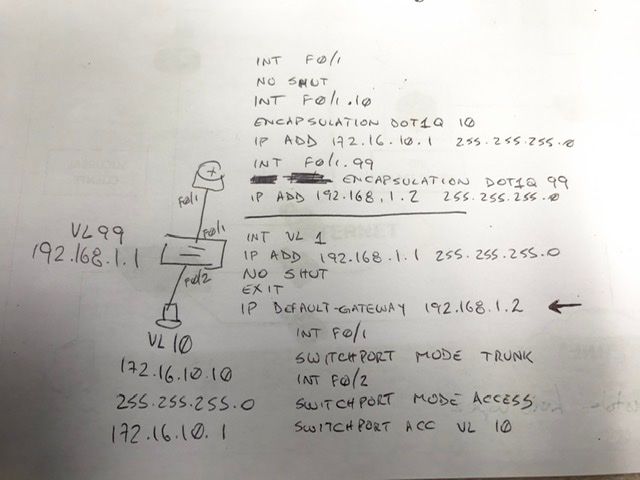 INT F0/1
NO SHUT
INT F0/1.10
ENCAPSULATION DOT1Q 10
IP ADD 172.16.10.1 255.255.255.0
INT F0/1.99
ENCAPSULATION DOT1Q 99
IP ADD 192.168.1.2 255.255.255.0
F0/1
F0/1
VL99
192.168.1.1
F0/2
VL 10
172.16.10.10
255.255.255.0
172.16.10.1
INT VL 1
IP ADD 192.168.1.1 255.255.255.0
NO SHUT
EXIT
IP DEFAULT-GATEWAY 192.168.1.2 ←
INT F0/1
SWITCHPORT MODE TRUNK
INT F0/2
SWITCHPORT MODE ACCESS
SWITCHPORT ACC VL 10